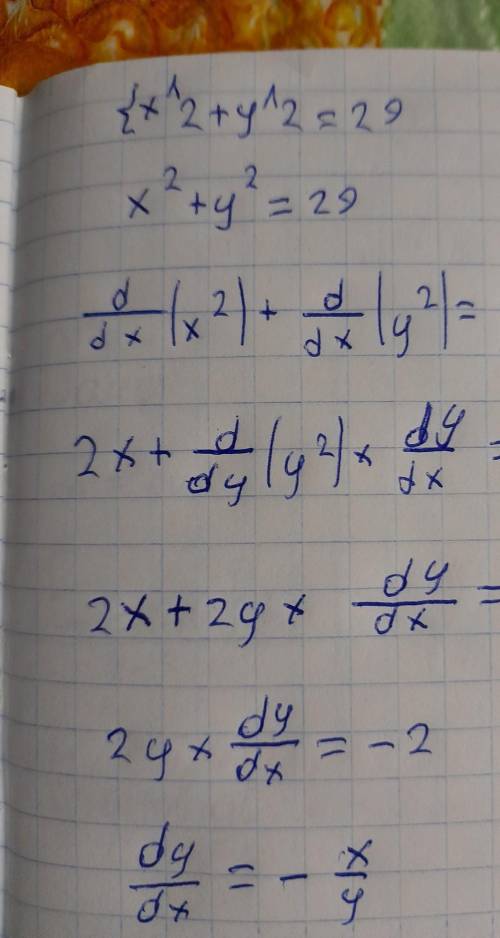 {x^2+y^2=29
x²+y²=29
d/dx(x²)+d/dx(y²)=
2x+d/dy(y²)×dy/dx=
2x+2y×dy/dx=
2y×dy/dx=-2
dy/dx=-x/y